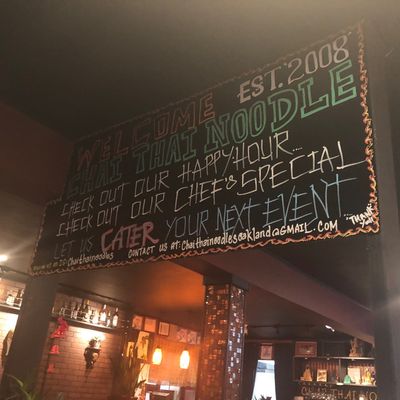 WELCOME EST. 2008
CHAI THAI NOODLE
CHECK OUT OUR HAPPY HOUR....
CHECK OUT OUR CHEF'S SPECIAL
LET US CATER YOUR NEXT EVENT
CONTACT US AT: Chaithainoodlesoakland@GMAIL.COM
Chaithainoodles
THANK
CHAI THAI NO